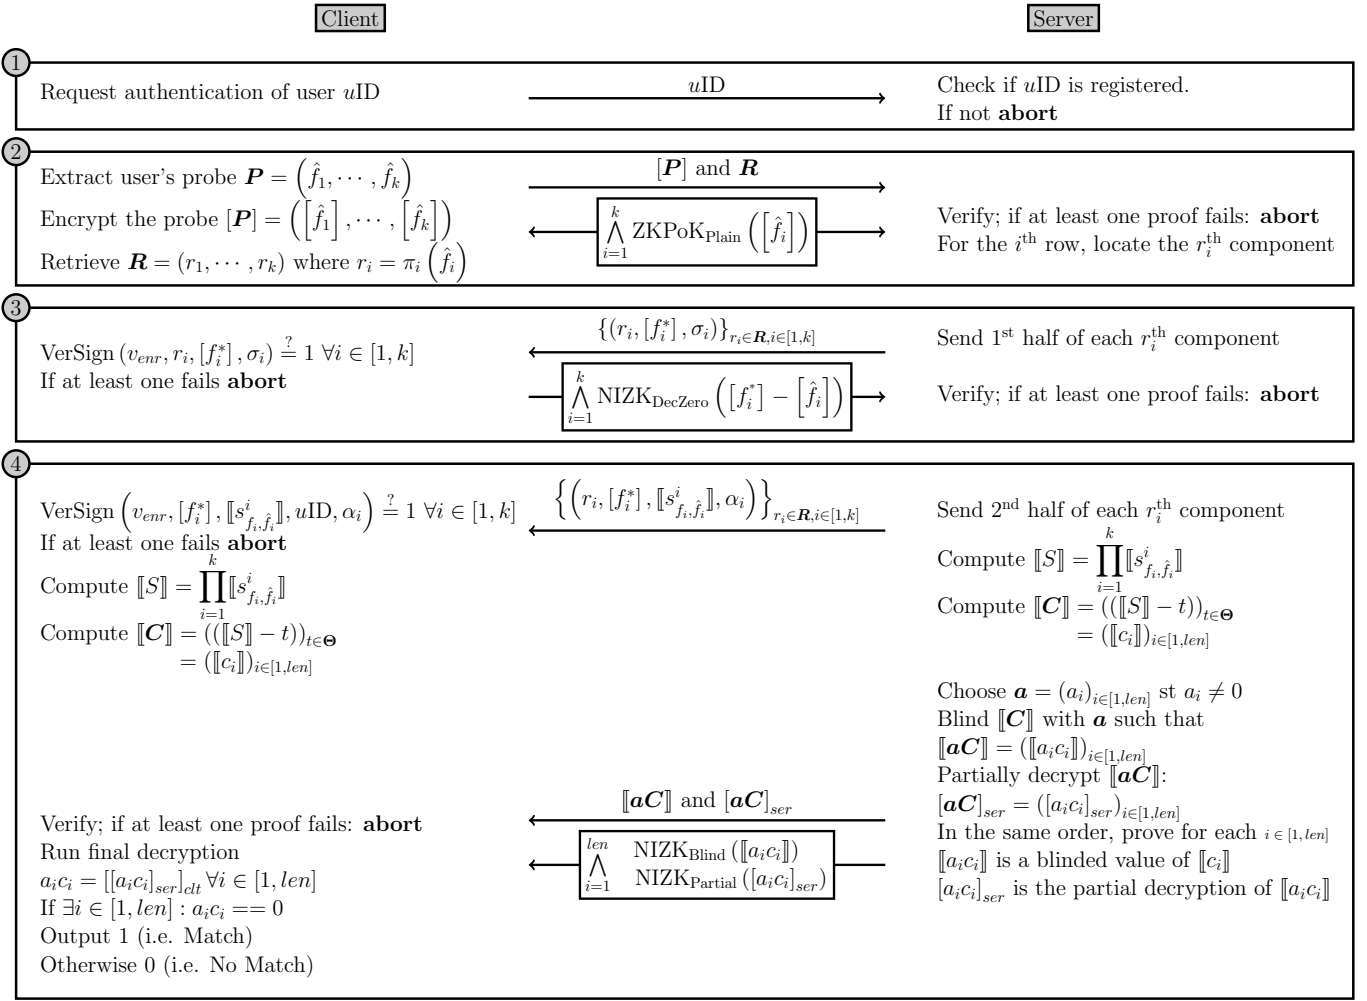 Client
Server
1
Request authentication of user uID
uID
Check if uID is registered.
If not abort
2
Extract user's probe P = (f̂₁, ⋯ , f̂ₖ)
Encrypt the probe [P] = ([f̂₁] , ⋯ , [f̂ₖ])
Retrieve R = (r₁, ⋯ , rₖ) where rᵢ = πᵢ (f̂ᵢ)
[P] and R
⋀_{i=1}^{k} ZKPoK_Plain ([f̂ᵢ])
Verify; if at least one proof fails: abort
For the i^th row, locate the r_i^th component
3
VerSign (v_enr, rᵢ, [f*_i] , σᵢ) ≟ 1 ∀i ∈ [1, k]
If at least one fails abort
{(rᵢ, [f*_i] , σᵢ)}_{rᵢ∈R, i∈[1,k]}
⋀_{i=1}^{k} NIZK_DecZero ([f*_i] − [f̂ᵢ])
Send 1^st half of each r_i^th component
Verify; if at least one proof fails: abort
4
VerSign (v_enr, [f*_i] , ⟦s^i_{fᵢ,f̂ᵢ}⟧, uID, αᵢ) ≟ 1 ∀i ∈ [1, k]
If at least one fails abort
Compute ⟦S⟧ = ∏_{i=1}^{k} ⟦s^i_{fᵢ,f̂ᵢ}⟧
Compute ⟦C⟧ = ((⟦S⟧ − t))_{t∈Θ}
= (⟦cᵢ⟧)_{i∈[1,len]}
{(rᵢ, [f*_i] , ⟦s^i_{fᵢ,f̂ᵢ}⟧, αᵢ)}_{rᵢ∈R, i∈[1,k]}
Send 2^nd half of each r_i^th component
Compute ⟦S⟧ = ∏_{i=1}^{k} ⟦s^i_{fᵢ,f̂ᵢ}⟧
Compute ⟦C⟧ = ((⟦S⟧ − t))_{t∈Θ}
= (⟦cᵢ⟧)_{i∈[1,len]}
Choose a = (aᵢ)_{i∈[1,len]} st aᵢ ≠ 0
Blind ⟦C⟧ with a such that
⟦aC⟧ = (⟦aᵢcᵢ⟧)_{i∈[1,len]}
Partially decrypt ⟦aC⟧:
[aC]_ser = ([aᵢcᵢ]_ser)_{i∈[1,len]}
In the same order, prove for each i ∈ [1, len]
⟦aᵢcᵢ⟧ is a blinded value of ⟦cᵢ⟧
[aᵢcᵢ]_ser is the partial decryption of ⟦aᵢcᵢ⟧
⟦aC⟧ and [aC]_ser
⋀_{i=1}^{len} NIZK_Blind (⟦aᵢcᵢ⟧)
NIZK_Partial ([aᵢcᵢ]_ser)
Verify; if at least one proof fails: abort
Run final decryption
aᵢcᵢ = [[aᵢcᵢ]_ser]_clt ∀i ∈ [1, len]
If ∃i ∈ [1, len] : aᵢcᵢ == 0
Output 1 (i.e. Match)
Otherwise 0 (i.e. No Match)